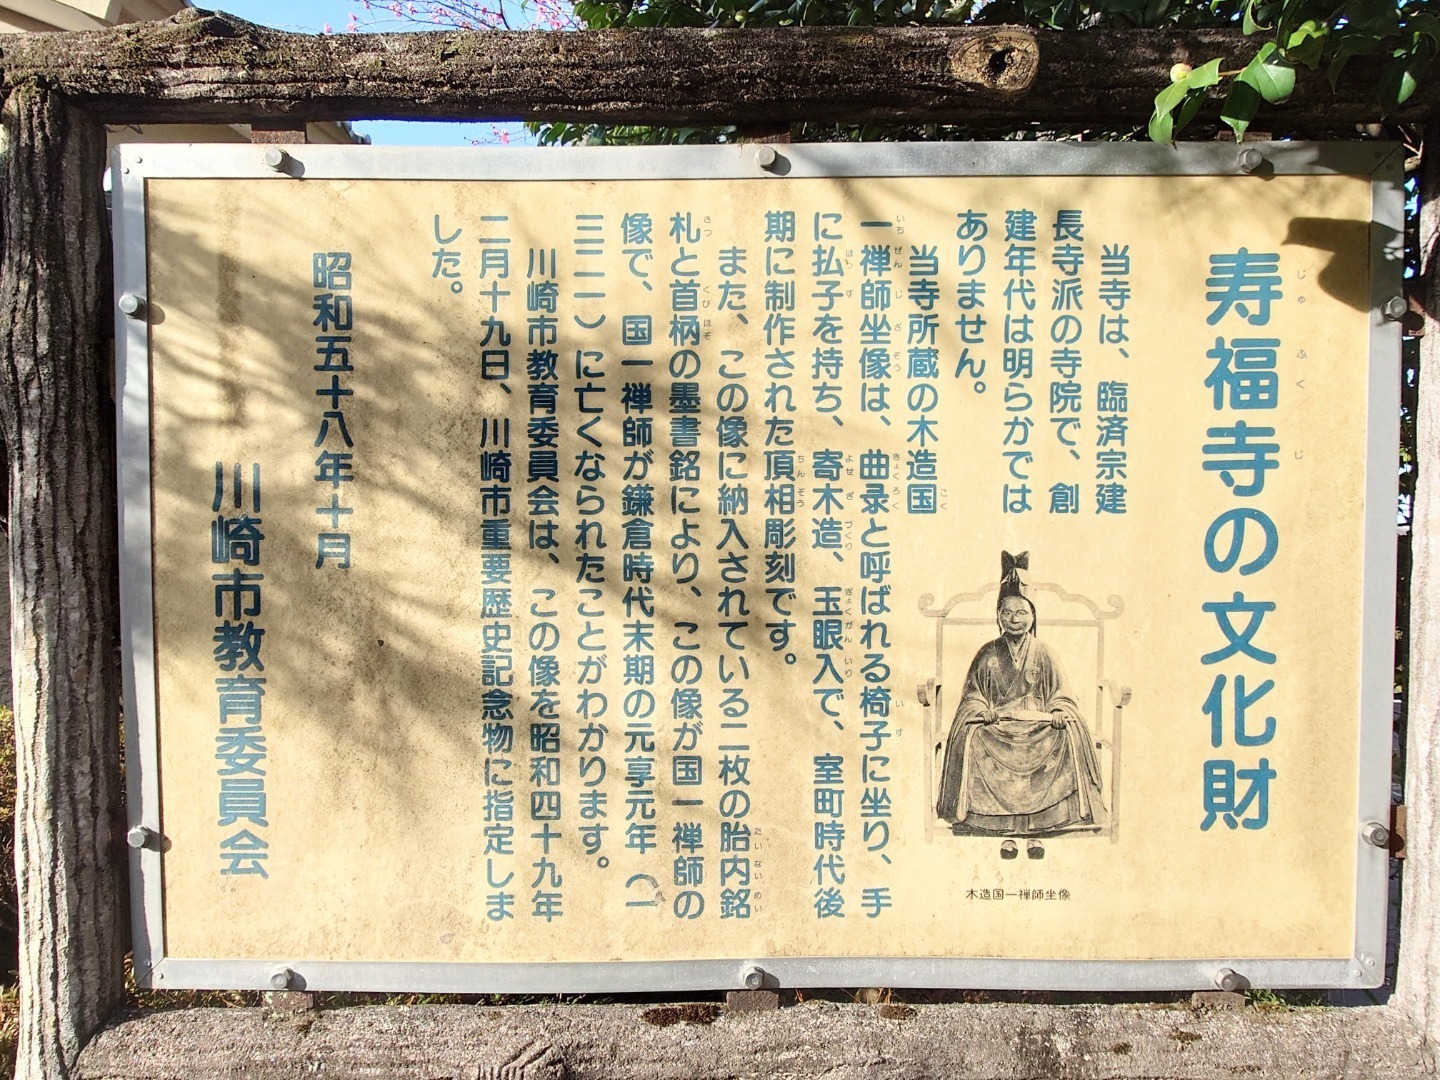 寿福寺の文化財
じゅふくじ
当寺は、臨済宗建
長寺派の寺院で、創
建年代は明らかでは
ありません。
当寺所蔵の木造国
こく
一禅師坐像は、曲彔と呼ばれる椅子に坐り、手
いちぜんじざぞう
きょくろく
いす
に払子を持ち、寄木造、玉眼入で、室町時代後
ほっす
よせぎづくり
ぎょくがんいり
期に制作された頂相彫刻です。
ちんぞう
また、この像に納入されている二枚の胎内銘
たいないめい
札と首柄の墨書銘により、この像が国一禅師の
さつ
くびほぞ
像で、国一禅師が鎌倉時代末期の元享元年（一
三二一）に亡くなられたことがわかります。
川崎市教育委員会は、この像を昭和四十九年
二月十九日、川崎市重要歴史記念物に指定しま
した。
昭和五十八年十月
川崎市教育委員会
木造国一禅師坐像